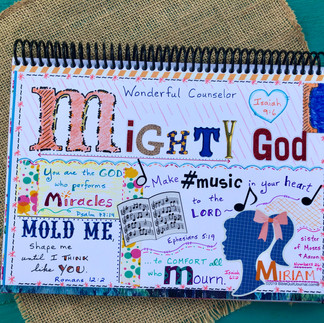 Wonderful Counselor
Isaiah
9:6
MiGHTY God
You are the GOD
who performs
Miracles
Psalm 77:14
Make #music in your heart
to the
LORD
Ephesians 5:19
MOLD ME,
Shape me
until I THINK
like YOU.
Romans 12:2
to COMFORT all
who
mourn.
Isaiah
sister
of Moses
+ Aaron
MIRIAM